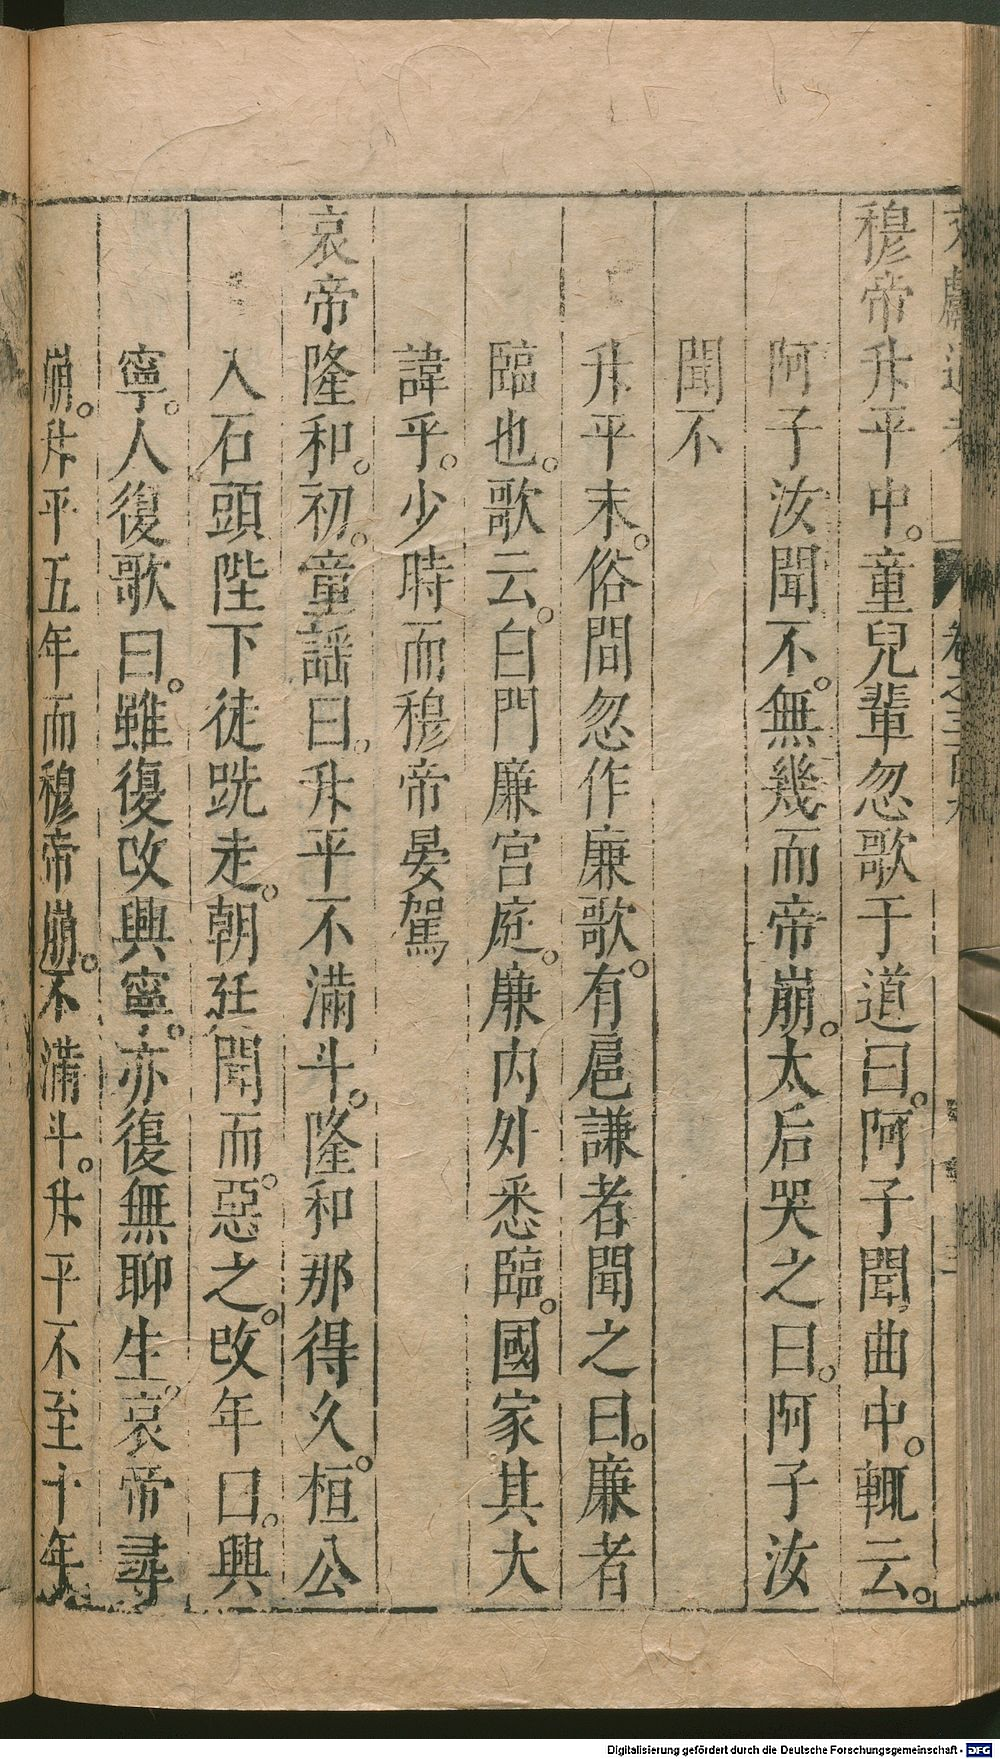 穆帝升平中。童兒輩忽歌于道曰。阿子聞。曲中。輒云。
阿子汝聞不。無幾而帝崩。太后哭之曰。阿子汝
聞不
升平末。俗間忽作廉歌。有扈謙者聞之曰。廉者
臨也。歌云。白門廉宮庭。廉內外悉臨。國家其大
諱乎。少時而穆帝晏駕
哀帝隆和。初。童謡曰。升平不滿斗。隆和那得久。桓公
入石頭陛下徒跣走。朝廷聞而。惡之。改年曰。興
寧。人復歌曰。雖復改興寧。亦復無聊生。哀帝尋
崩。升平五年而穆帝崩。不滿斗。升平不至十年
Digitalisierung gefördert durch die Deutsche Forschungsgemeinschaft - DFG